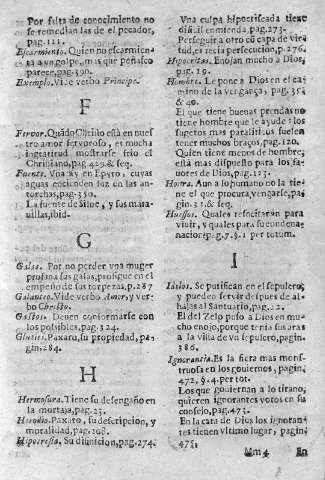 Por falta de conocimiento no
se remedian las de el pecador,
pag. 111.
Escarmiento. Quien no escarmien-
ta a vn golpe, mas que peñasco
parece, pag. 390.
Exemplo. Vide verbo Principe.
F
Fervor. Quãdo Christo está en nues-
tro amor fervoroso, es mucha
ingratitud mostrarse frio el
Christiano, pag. 429. & seq.
Fuente. Vna ay en Epyro, cuyas
aguas encienden luz en las an-
torchas, pag. 350.
La fuente de Siloe, y sus mara-
uillas, ibid.
G
Galas. Por no perder vna muger
profana sus galas, prosigue en el
empeño de sus torpezas, p. 287
Galanteo. Vide verbo Amor, y ver-
bo Christo.
Gastos. Deuen conformarse con
los possibles, pag. 324.
Gluties. Paxaro, su propiedad, pa-
gin. 284.
H
Hermosura. Tiene su desengaño en
la mortaja, pag. 23.
Herodio. Paxaro, su descripcion, y
moralidad, pag. 208.
Hipocresia. Su difinicion, pag. 274.
Vna culpa hipocrisada tiene
dificil enmienda, pag. 273.
Perseguir a otro cõ capa de vir-
tud, es recia persecucion, p. 276.
Hipocritas. Enojan mucho a Dios,
pag. 19.
Hombre. Le pone a Dios en el ca-
mino de la vengança, pag. 354
& 40.
El que tiene buenas prendas no
tiene hombre que le ayude: los
sugetos mas paraliticos suelen
tener muchos braços, pag. 120.
Quien tiene menos de hombre,
está mas dispuesto para los fa-
uores de Dios, pag. 123.
Honra. Aun a lo humano no la tie-
ne el que procura vengarse, pa-
gin. 32. & seq.
Huessos. Quales resucitarán para
viuir, y quales para su condena-
cion, pag. 7. §. 1 per totum.
I
Idolos. Se purifican en el sepulcro,
y pueden servir despues de al-
hajas al Santuario, pag. 12.
El del Zelo puso a Dios en mu-
cho enojo, porque tenia sus aras
a la vista de vn sepulcro, pagin.
386.
Ignorancia. Es la fiera mas mons-
truosa en los gouiernos, pagin.
472. §. 4. per tot.
Los que gouiernan a lo tirano,
quieren ignorantes votos en su
consejo, pag. 473.
En la casa de Dios los ignoran-
tes tienen vltimo lugar, pagin.
475.
Mm 4 En